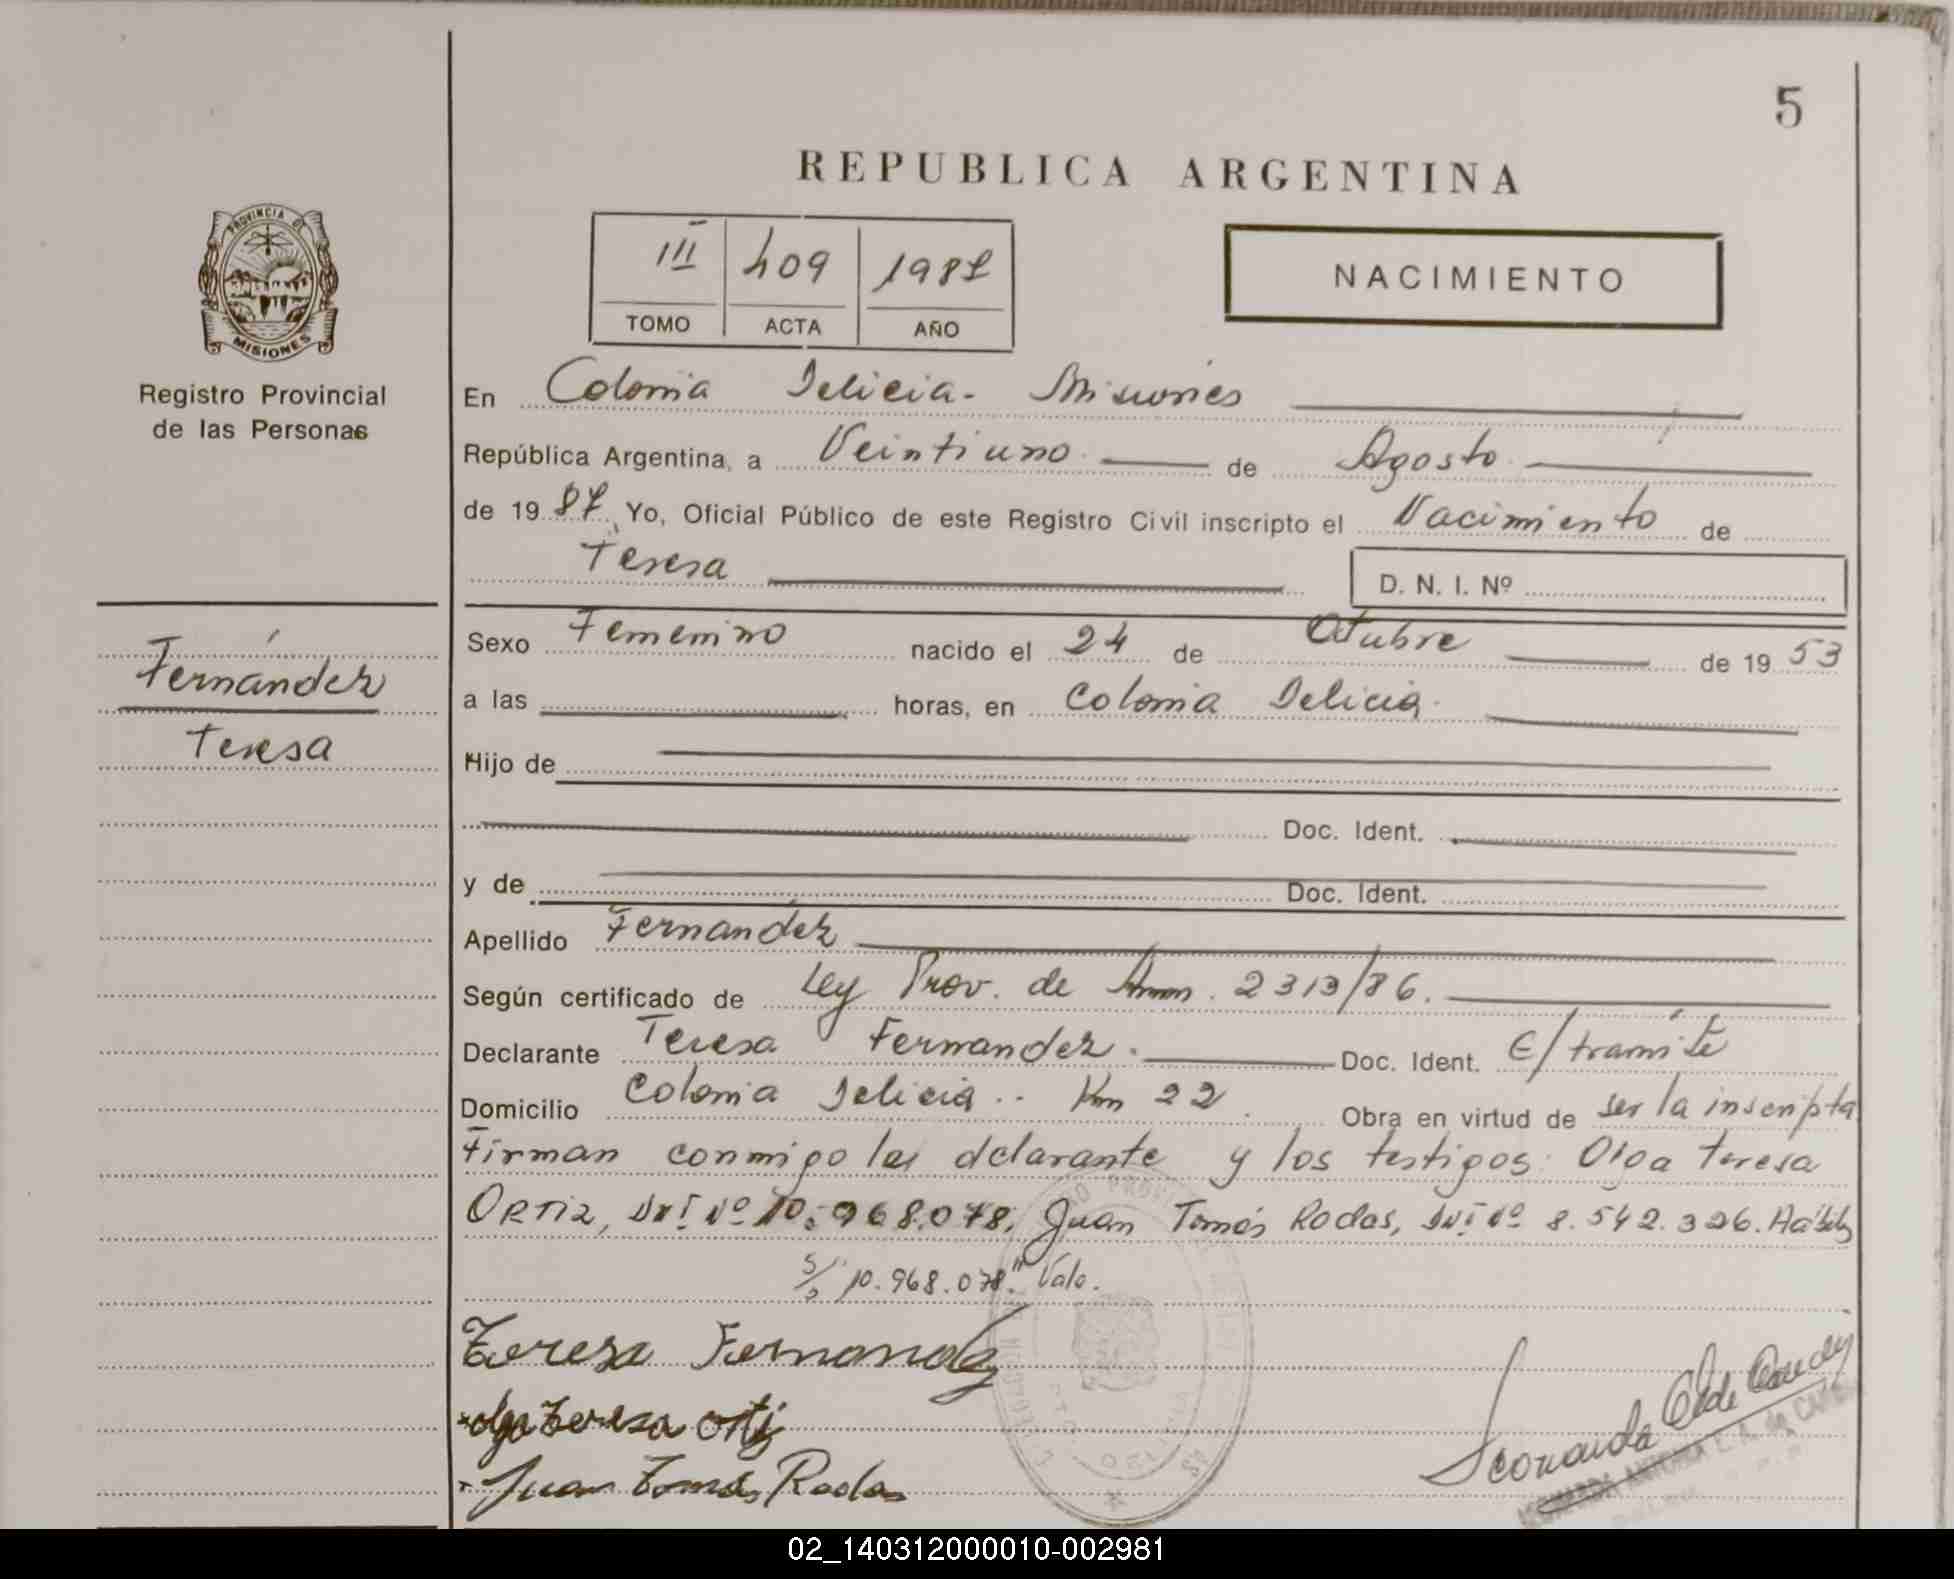 5
REPUBLICA ARGENTINA
PROVINCIA DE
MISIONES
Registro Provincial
de las Personas
III 409 1987
TOMO ACTA AÑO
NACIMIENTO
En Colonia Delicia - Misiones
República Argentina, a Veintiuno de Agosto
de 19 87 Yo, Oficial Público de este Registro Civil inscripto el Nacimiento de
Teresa D. N. I. Nº
Fernández
Teresa
Sexo Femenino nacido el 24 de Octubre de 19 53
a las horas, en Colonia Delicia.
Hijo de
Doc. Ident.
y de Doc. Ident.
Apellido Fernández
Según certificado de Ley Prov. de Amn. 2313/86.
Declarante Teresa Fernandez. Doc. Ident. E/trámite
Domicilio Colonia Delicia.. Km 22. Obra en virtud de ser la inscripta
Firman conmigo la declarante y los testigos: Olga Teresa
ORTIZ, DNI Nº 10.968.078, Juan Tomás Rodas, DNI Nº 8.542.326. Hábiles
S/ 10.968.078." Vale.
Teresa Fernandez
Olga Teresa Ortiz
Juan Tomás Rodas
02_140312000010-002981